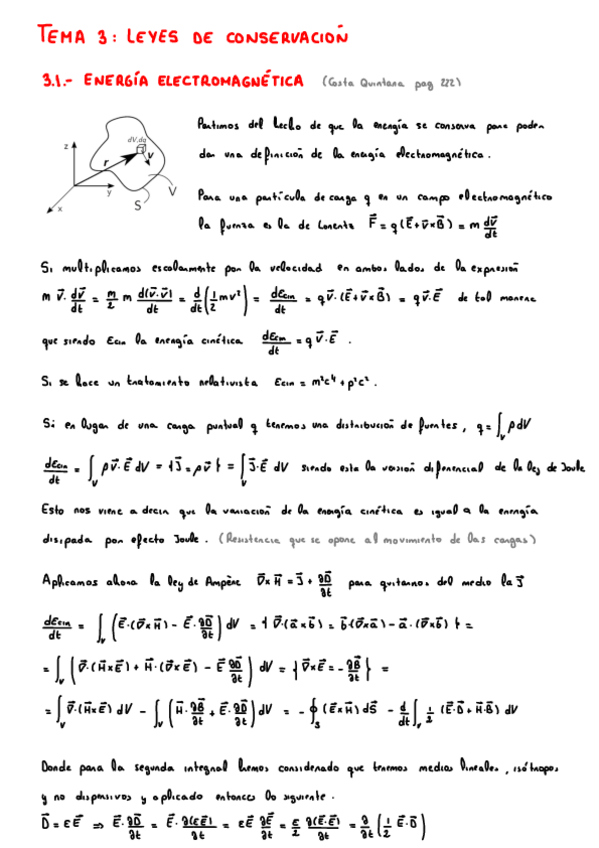 TEMA 3: LEYES DE CONSERVACIÓN
3.1.- ENERGÍA ELECTROMAGNÉTICA (Costa Quintana pag 222)
Partimos del hecho de que la energía se conserva para poder
dar una definición de la energía electromagnética.
dV,dq
z
r
v
y
x
S
V
Para una partícula de carga q en un campo electromagnético
la fuerza es la de Lorentz F⃗ = q(E⃗+v⃗×B⃗) = m dv⃗/dt
Si multiplicamos escalarmente por la velocidad en ambos lados de la expresión
m v⃗· dv⃗/dt = m/2 m d(v⃗·v⃗)/dt = d/dt(1/2 mv²) = dEcin/dt = qv⃗·(E⃗+v⃗×B⃗) = qv⃗·E⃗ de tal manera
que siendo Ecin la energía cinética dEcin/dt = q v⃗·E⃗ .
Si se hace un tratamiento relativista Ecin = m²c⁴ + p²c² .
Si en lugar de una carga puntual q tenemos una distribución de fuentes, q = ∫_V ρ dV
dEcin/dt = ∫_V ρ v⃗·E⃗ dV = {J⃗ = ρv⃗} = ∫_V J⃗·E⃗ dV siendo esta la versión diferencial de la ley de Joule
Esto nos viene a decir que la variación de la energía cinética es igual a la energía
disipada por efecto Joule. (Resistencia que se opone al movimiento de las cargas)
Aplicamos ahora la ley de Ampère ∇⃗×H⃗ = J⃗ + ∂D⃗/∂t para quitarnos del medio la J⃗
dEcin/dt = ∫_V (E⃗·(∇⃗×H⃗) - E⃗·∂D⃗/∂t) dV = {∇⃗·(a⃗×b⃗) = b⃗(∇⃗×a⃗) - a⃗·(∇⃗×b⃗)} =
= ∫_V (∇⃗·(H⃗×E⃗) + H⃗·(∇⃗×E⃗) - E⃗ ∂D⃗/∂t) dV = {∇⃗×E⃗ = -∂B⃗/∂t} =
= ∫_V ∇⃗·(H⃗×E⃗) dV - ∫_V (H⃗·∂B⃗/∂t + E⃗·∂D⃗/∂t) dV = - ∮_S (E⃗×H⃗) dS⃗ - d/dt ∫_V 1/2 (E⃗·D⃗ + H⃗·B⃗) dV
Donde para la segunda integral hemos considerado que tenemos medios lineales, isótropos
y no dispersivos y aplicado entonces lo siguiente.
D⃗ = εE⃗ ⇒ E⃗·∂D⃗/∂t = E⃗·∂(εE⃗)/∂t = εE⃗ ∂E⃗/∂t = ε/2 ∂(E⃗·E⃗)/∂t = ∂/∂t (1/2 E⃗·D⃗)